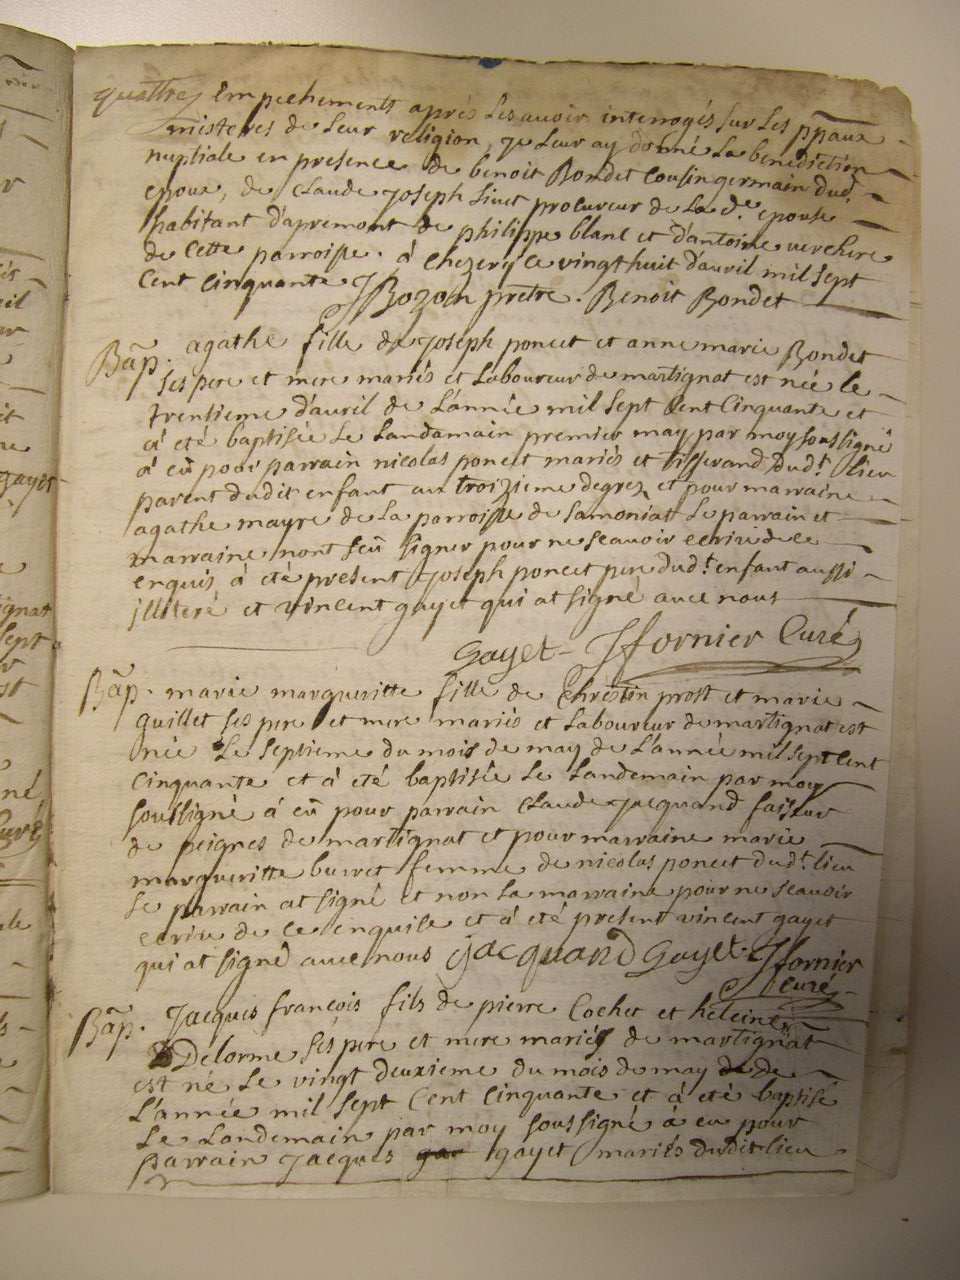 quattres Empechements après les avoir interrogés sur Les ppaux
misteres de Leur religion, Je Leur ay donné La benediction
nuptiale en presence de benoit Bondet Cousin germain dud.
epoux, de Claude Joseph Livet procureur de La de. epouse
habitant d'apremont de philippe blanc et d'antoine verchere
de Cette parroisse. à Chezery Ce vingt huit d'auril mil sept
Cent Cinquante JBozon prêtre. Benoit Bondet
Bap. agathe fille de Joseph poncet et anne marie Bondet
ses pere et mere mariés et Laboureur de martignat est née le
trentieme d'auril de L'année mil sept Cent Cinquante et
à été baptisée Le Landamain premier may par moy soussigné
à eû pour parrain nicolas poncet mariés et tisserand dud.t lieu
parent dudit enfant au troizieme degrez et pour marraine
agathe mayre de La parroisse de Samoniat Le parrain et
marraine nont seû signer pour ne scauoir ecrire de ce
enquis à été present Joseph poncet pere dud.t enfant aussi
illiteré et vincent gayet qui at signé auec nous
Gayet JFornier Curé
Bap. marie margueritte fille de Chrestin prost et marie
guillet ses pere et mere mariés et Laboureur de martignat est
née Le septieme du mois de may de L'année mil sept cent
Cinquante et à été baptisée Le Landemain par moy
soussigné à eû pour parrain Claude Jacquand faiseur
de peignes de martignat et pour marraine marie
margueritte burret femme de nicolas poncet dud.t lieu
Le parrain at signé et non La marraine pour ne scauoir
ecrire de ce enquise et à été present vincent gayet
qui at signé auec nous Jacquand Gayet JFornier
Curé
Bap. Jacques françois fils de pierre Cochet et heleine
Delorme ses pere et mere mariés de martignat
est né Le vingt deuxieme du mois de may de
L'année mil sept Cent Cinquante et à été baptisé
Le Landemain par moy soussigné à eu pour
parrain Jacques gayet mariés dudit lieu